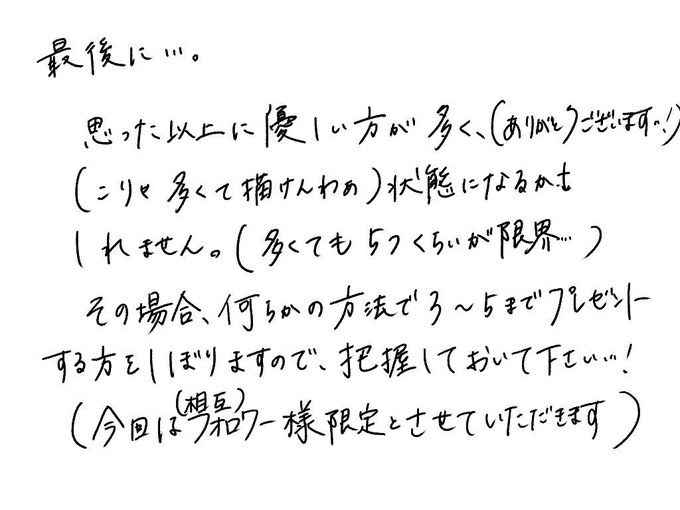 最後に…。
思った以上に優しい方が多く、(ありがとうございますっ!)
(こりゃ多くて描けんわぁ)状態になるかも
しれません。(多くても5つくらいが限界…)
その場合、何らかの方法で3～5までプレゼント
する方をしぼりますので、把握しておいて下さい…!
(今回は(相互)フォロワー様限定とさせていただきます)